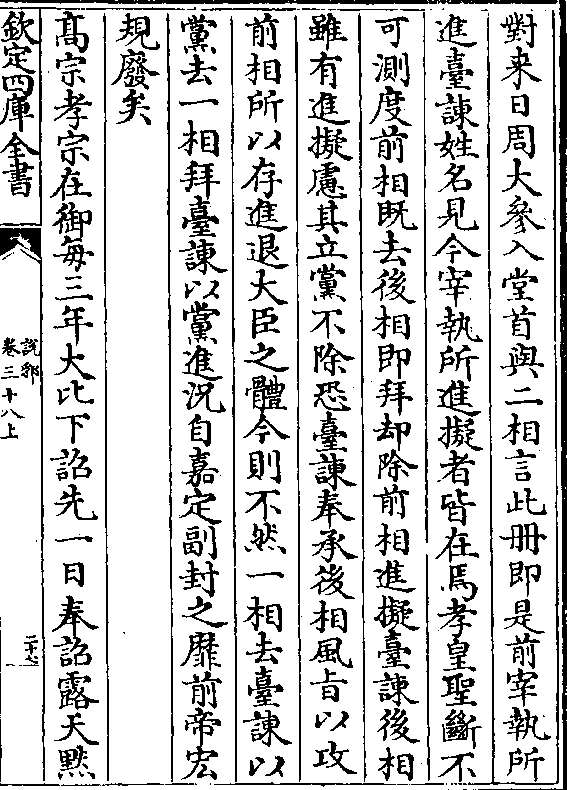 對来日周大參入堂首與二相言此册即是前宰執所
進臺諫姓名見今宰執所進擬者皆在焉孝皇聖斷不
可測度前相既去後相即拜却除前相進擬臺諫後相
雖有進擬慮其立黨不除恐臺諫奉承後相風㫖以攻
前相所以存進退大臣之體今則不然一相去臺諫以
黨去一相拜臺諫以黨進況自嘉定副封之靡前帝宏
規廢矣
髙宗孝宗在御每三年大比下詔先一日奉詔露天黙
欽定四庫全書
說郛
卷三十八上
二十七